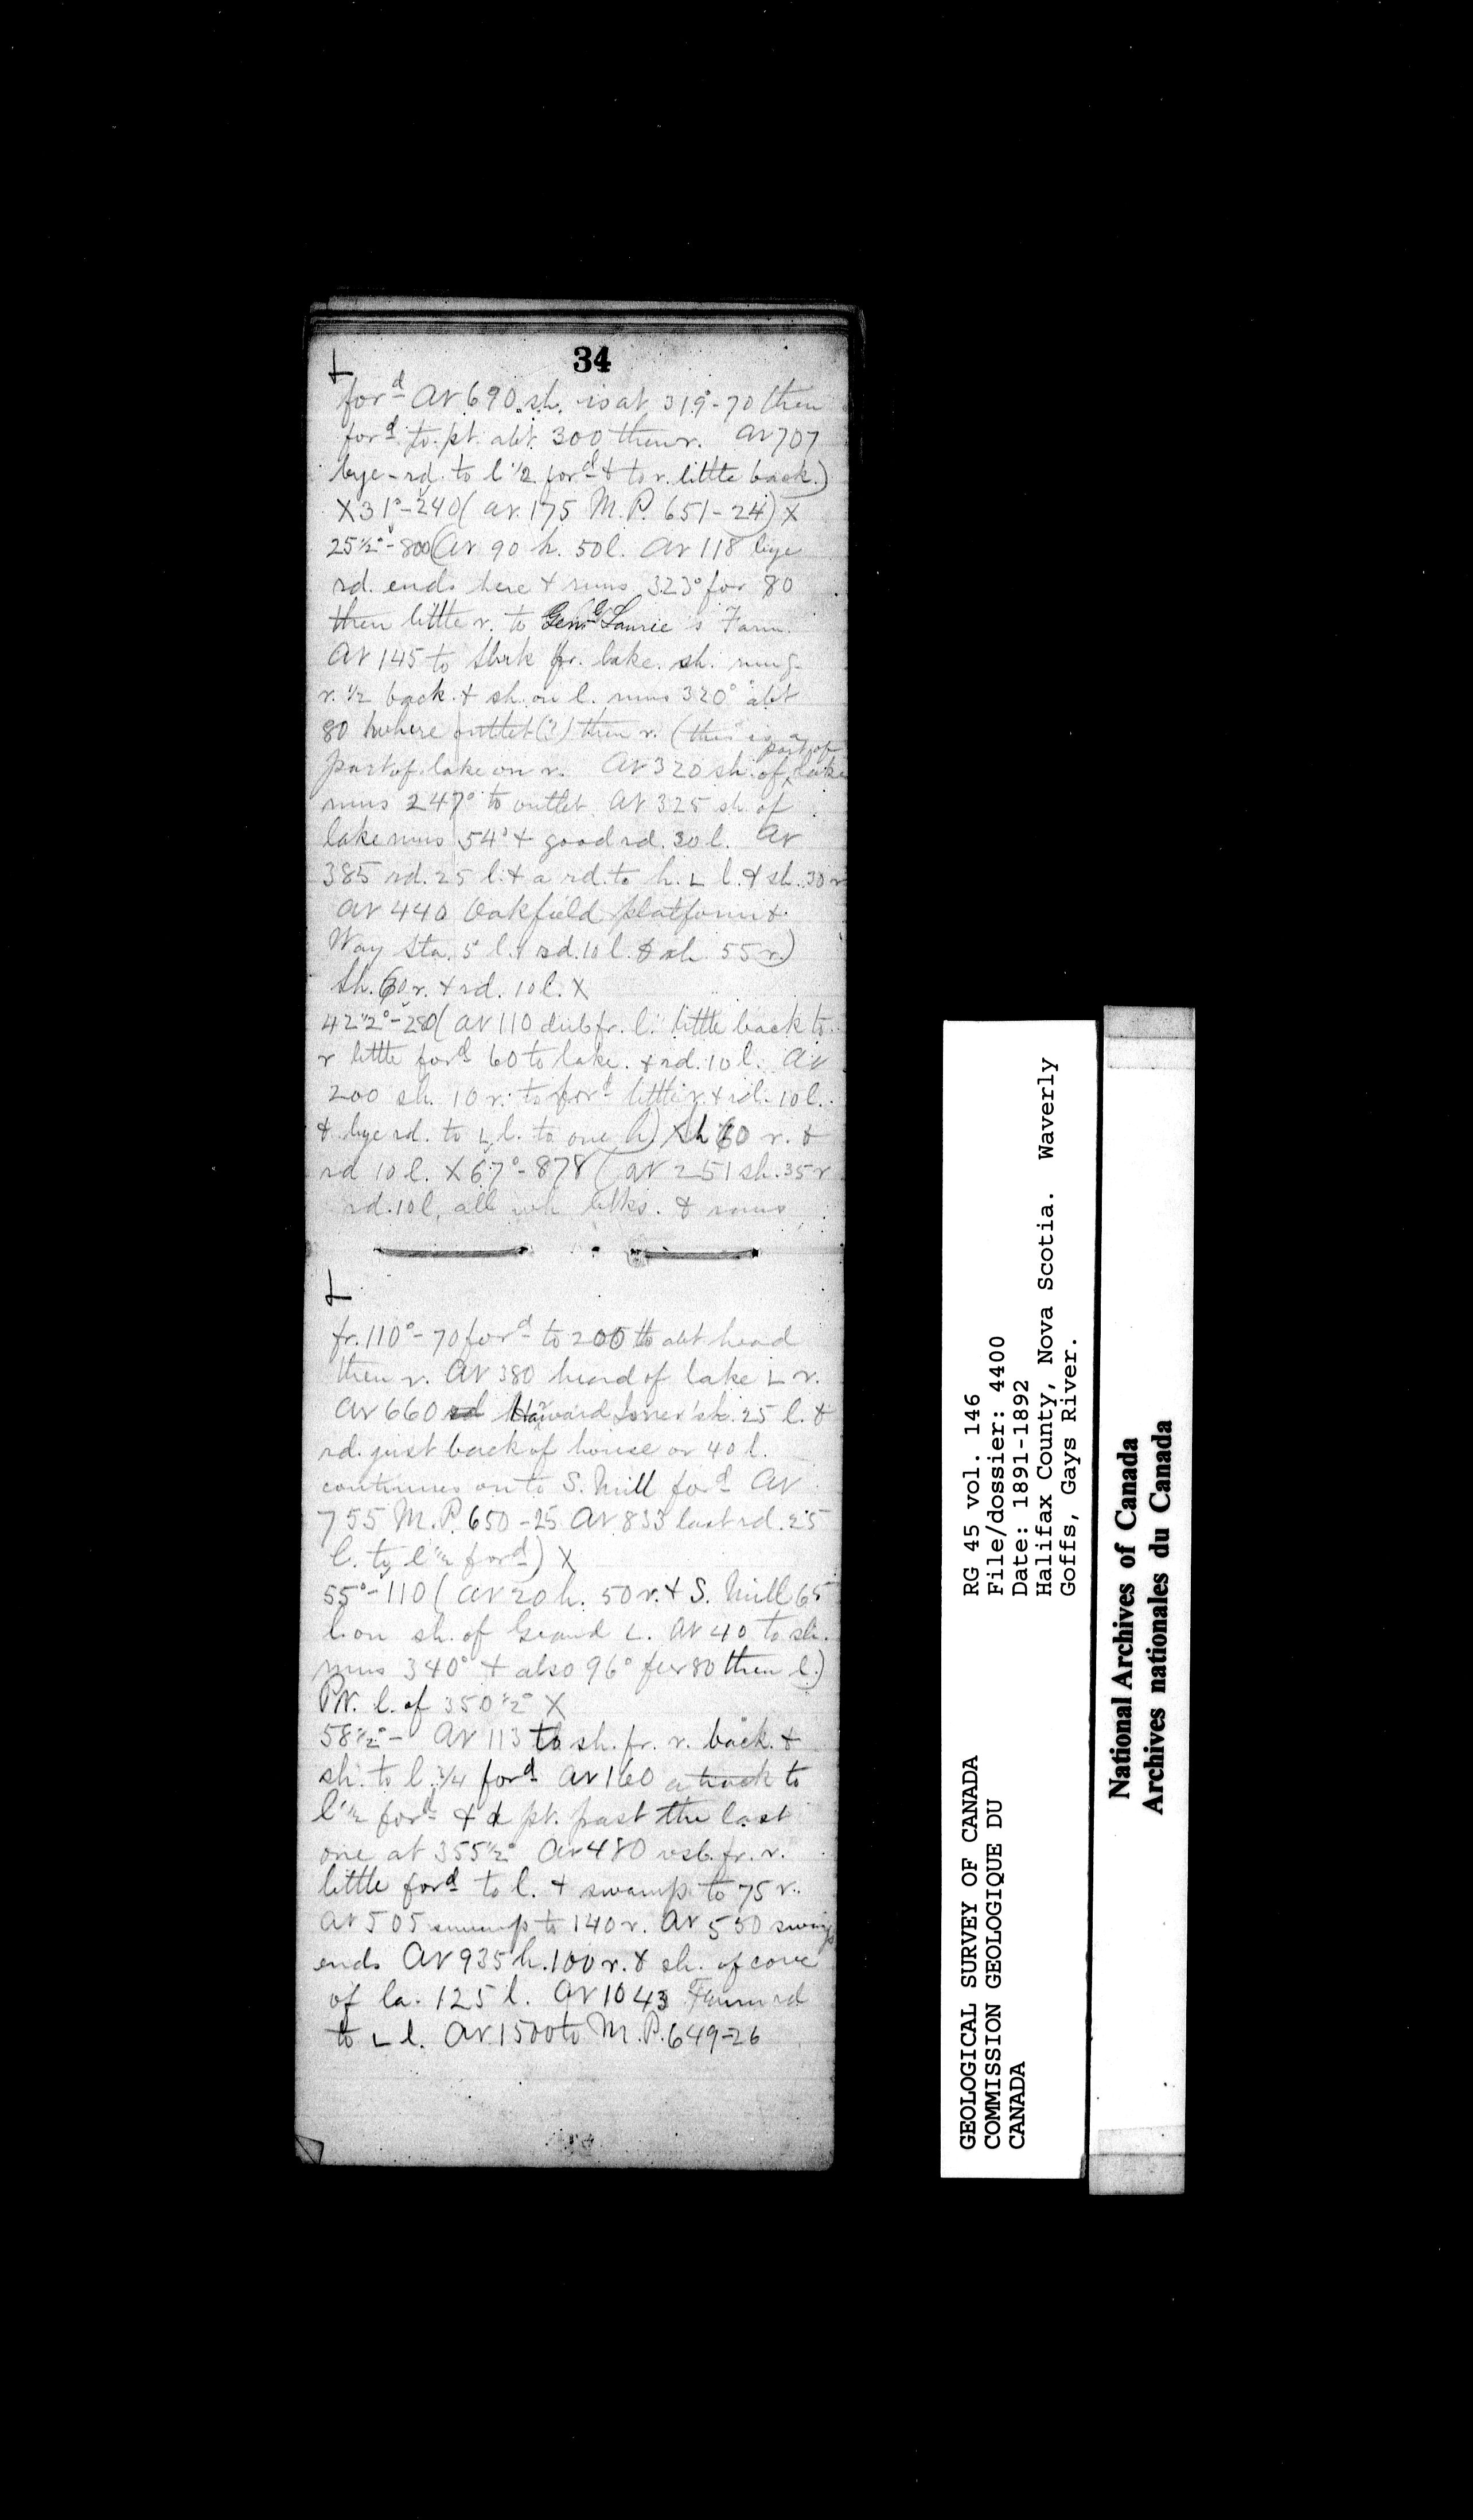 34
ford At 690 sh. is at 319°-70 then
ford to pt. abt 300 then r. At 707
bye-rd. to l 1/2 ford & to r. little back.)
X 31°-240 (at 175 M.P. 651-24) X
25 1/2°-800 (At 90 h. 50 l. At 118 bye
rd. ends here & runs 323° for 80
then little r. to Genl Laurie's Farm.
At 145 to fr. lake. sh. rung.
r. 1/2 back. & sh. on l. runs 320° abt
80 where outlet (?) then r. (this is a
part of lake on r. At 320 sh. of part of lake
runs 247° to outlet At 325 sh. of
lake runs 54° & good rd. 30 l. At
385 rd. 25 l. & a rd. to h. L l. & sh. 30 r
At 440 Oakfield platform &
Way Sta. 5 l. & rd. 10 l. & sh. 55 r.)
Sh. 60 r. & rd. 10 l. X
42 1/2°-280 (At 110 fr. l. little back to
r little ford 60 to lake. & rd. 10 l. At
200 sh. 10 r. to ford little r. & rd. 10 l.
& bye rd. to L l. to one h) X sh 60 r. &
rd 10 l. X 67°-878 (at 251 sh. 35 r
rd. 10 l, all & runs
fr. 110°-70 ford to 200 to abt head
then r. At 380 head of lake L r.
At 660 Howard 25 l. &
rd. just back of house or 40 l.
continues on to S. Mill ford At
755 M.P. 650-25 At 833 last rd. 25
l. to l 1/2 ford) X
55°-110 (at 20 h. 50 r. & S. Mill 65
l. on sh. of Grand L. At 40 to sh.
runs 340° & also 96° for 80 then l.)
Pr. l. of 350 1/2° X
58 1/2°- At 113 to sh. fr. r. back. &
sh. to l. 3/4 ford At 160 a track to
l 1/2 ford & pt. past the last
one at 355 1/2° At 480 fr. r.
little ford to l. & swamp to 75 r.
At 505 swamp to 140 r. At 550 swamp
ends At 935 h. 100 r. & sh. of cove
of la. 125 l. At 1043 Farm rd
to L l. At 1500 to M.P. 649-26
GEOLOGICAL SURVEY OF CANADA
COMMISSION GEOLOGIQUE DU
CANADA
RG 45 vol. 146
File/dossier: 4400
Date: 1891-1892
Halifax County, Nova Scotia. Waverly
Goffs, Gays River.
National Archives of Canada
Archives nationales du Canada